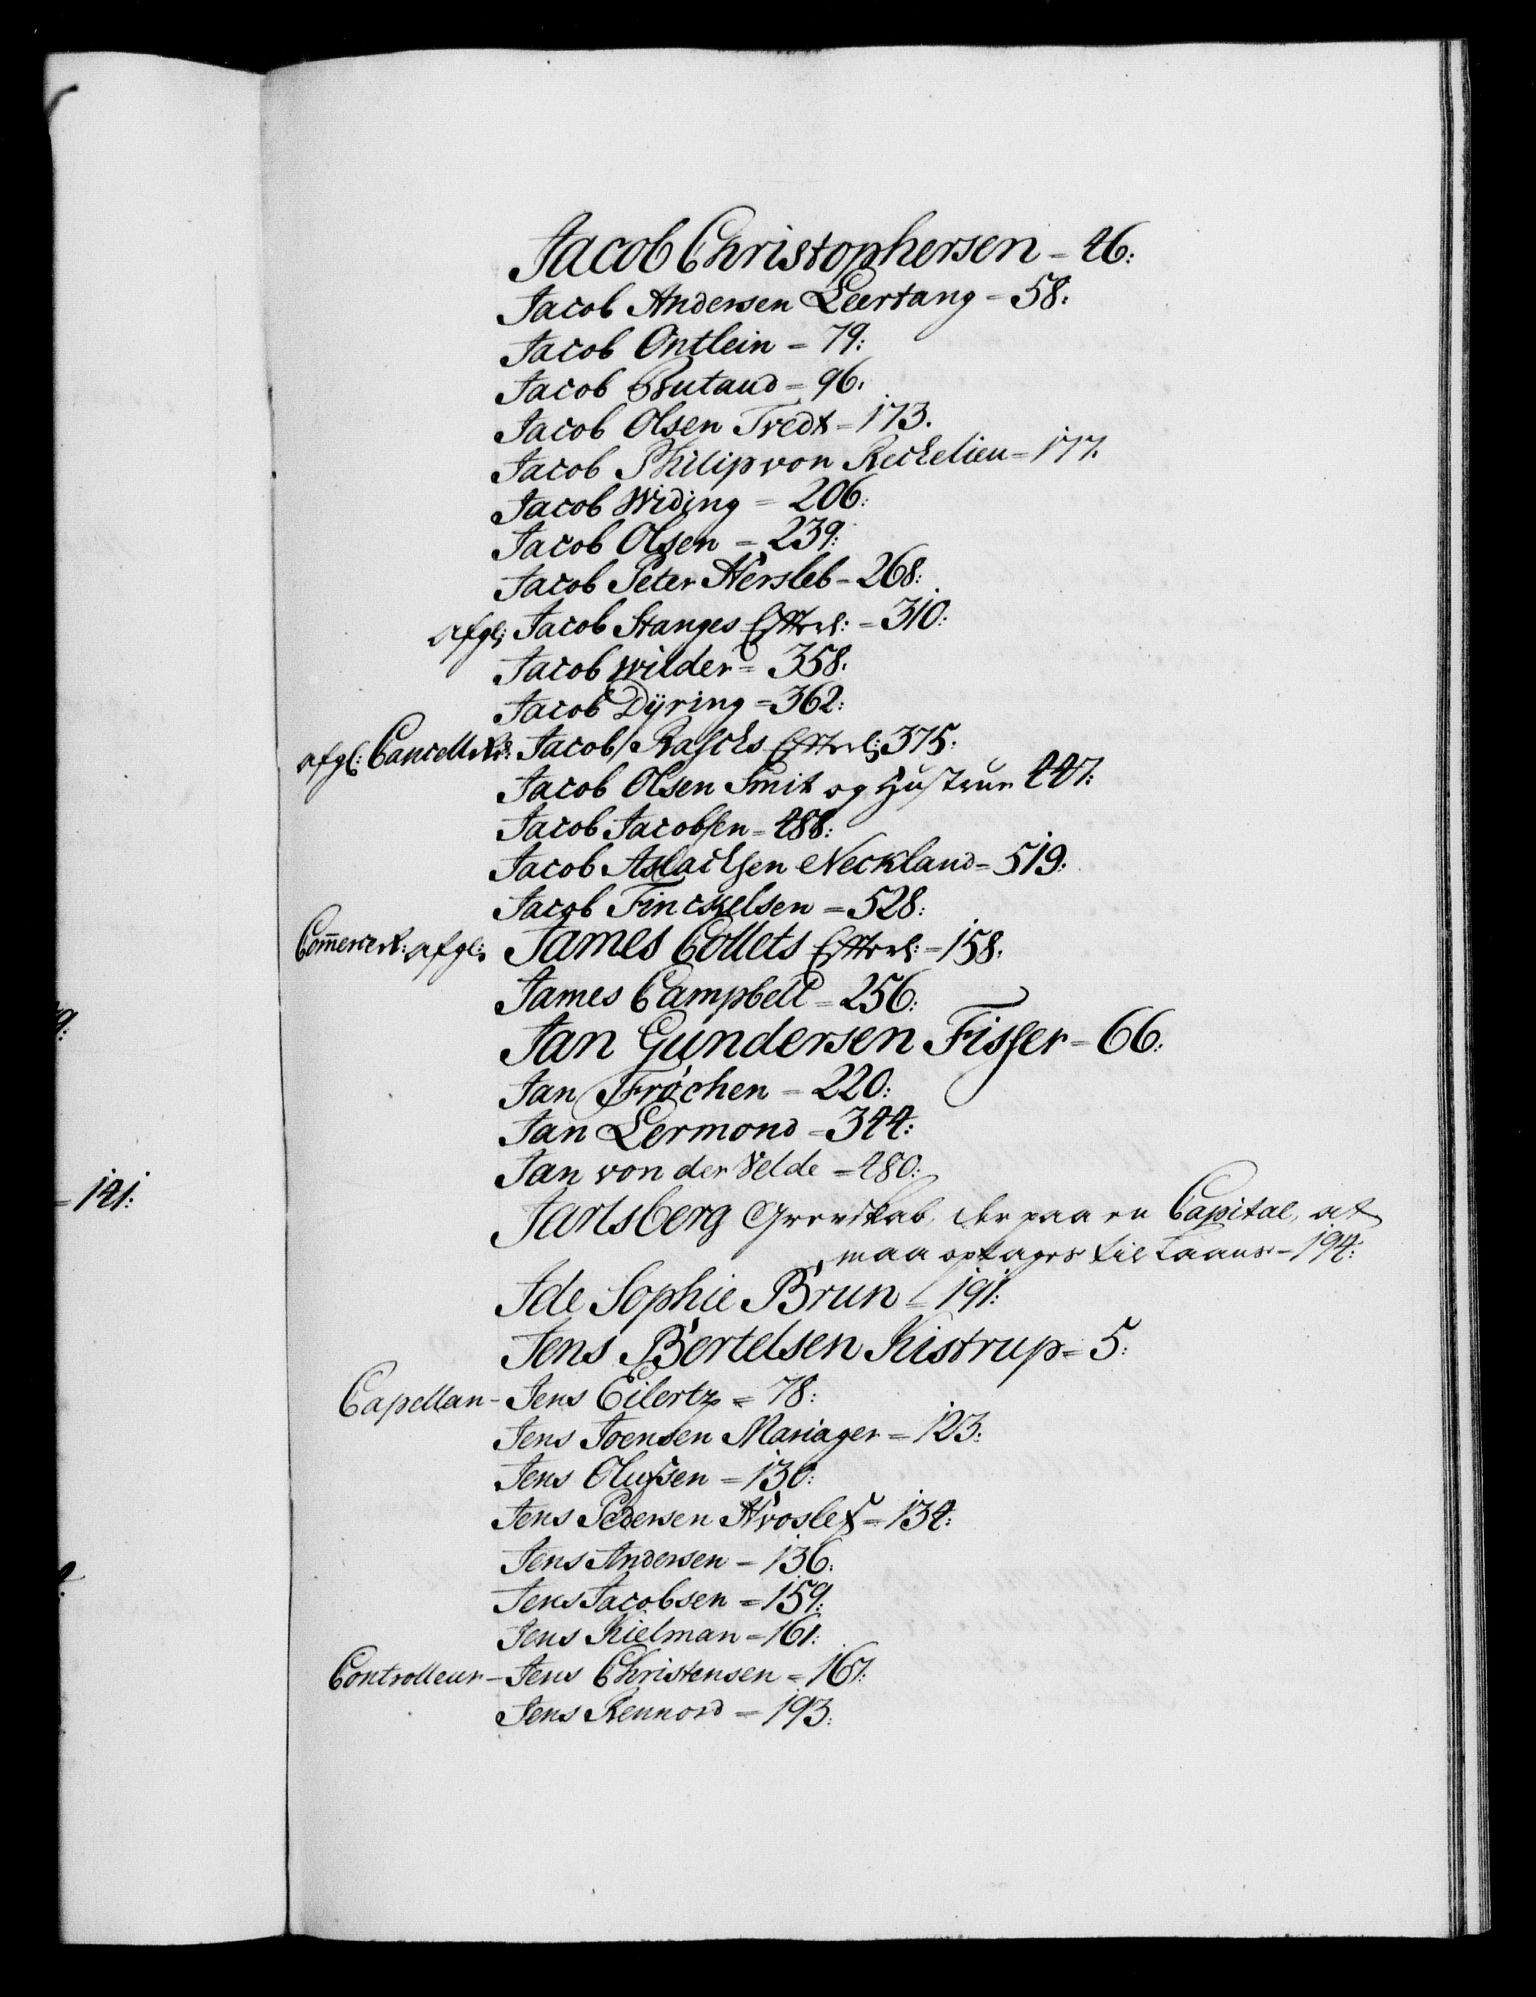 Jacob Christophersen = 46:
Jacob Andersen Leertang = 58:
Jacob Ontlein = 79:
Jacob Butaud = 96.
Jacob Olsen Tredt = 173.
Jacob Philip von Rechelieu = 177.
Jacob Widing = 206:
Jacob Olsen = 239:
Jacob Peter Hersleb = 268:
afgl: Jacob Stanges Effterl: = 310:
Jacob Wilder = 358.
Jacob Dÿring = 362:
afgl: CancellRd: Jacob Raschs Effterl: 375:
Jacob Olsen Smit og Hustrue 447:
Jacob Jacobsen = 488:
Jacob Aslachsen Neckland = 519:
Jacob Finckelsen = 528:
Com̅erceR: afgl: James Collets Effterl: = 158.
James Campbell = 256:
Jan Gundersen Fisser = 66:
Jan Fröchen = 220:
Jan Lermond = 344:
Jan von der Velde = 480:
Jarlsberg Grevskab, der paa en Capital, at
maa optages til Laans = 194:
Ide Sophie Brun = 191:
Jens Bertelsen Kistrup = 5:
Capellan - Jens Eilertz = 78:
Jens Joensen Mariager = 123:
Jens Olufsen = 130:
Jens Pedersen Hvoslef = 134:
Jens Andersen = 136:
Jens Jacobsen = 159:
Jens Kielman = 161:
Controlleur - Jens Christensen = 167:
Jens Rennord = 193:
9:
= 141: